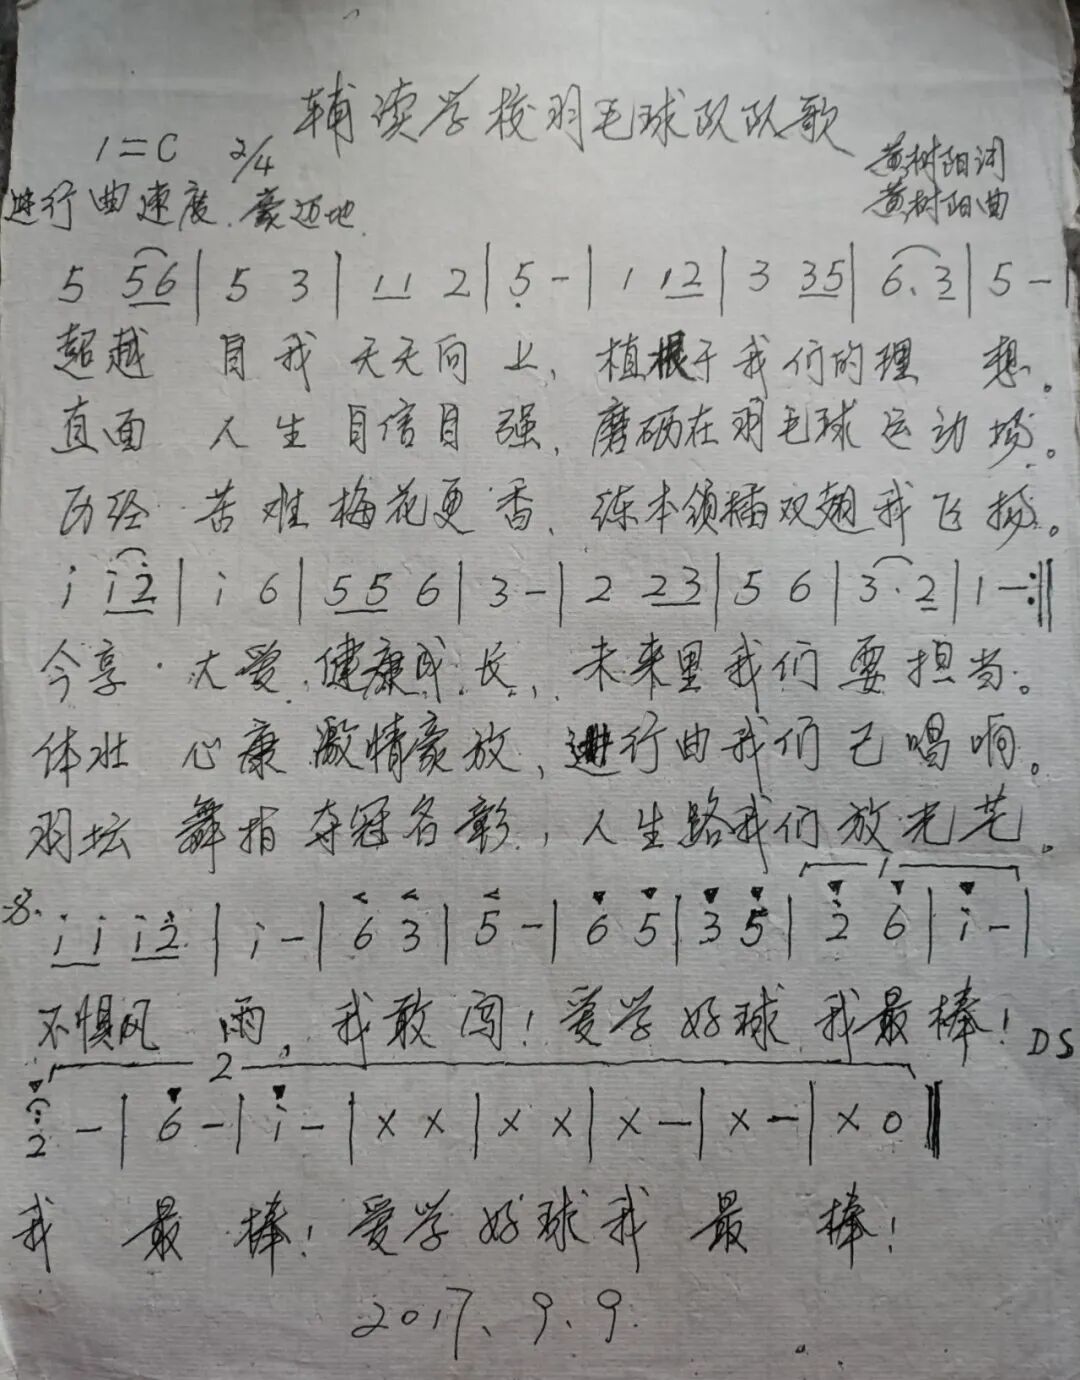 辅读学校羽毛球队队歌
1=C 2/4
黄树阳词
进行曲速度.豪迈地.
黄树阳曲
5 56 | 5 3 | 11 2 | 5̣ - | 1 12 | 3 35 | 6. 3 | 5 - |
超越 自我 天天向上, 植根于我们的理 想。
直面 人生 自信自强, 磨砺在羽毛球运动场。
历经 苦难 梅花更香, 练本领插双翅我飞扬。
i i2̇ | i 6 | 55 6 | 3 - | 2 23 | 5 6 | 3. 2 | 1 - :‖
今享 大爱 健康成长, 未来里我们要担当。
体壮 心康 激情豪放, 进行曲我们已唱响。
羽坛 舞指 夺冠名彰, 人生路我们放光芒.
1
i i i 2̇ | i - | 6 3 | 5 - | 6 5 | 3 5 | 2̇ 6 | i - |
不惧风 雨, 我敢闯! 爱学好球 我最棒! DS
2
2̇ - | 6 - | i - | X X | X X | X - | X - | X 0 ‖
我 最 棒! 爱学好球我 最 棒!
2017、9、9.